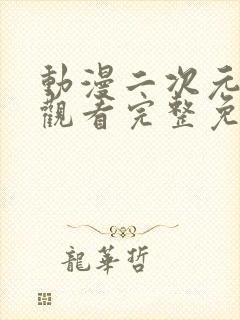 動漫二次元
觀看完整免
龍華哲